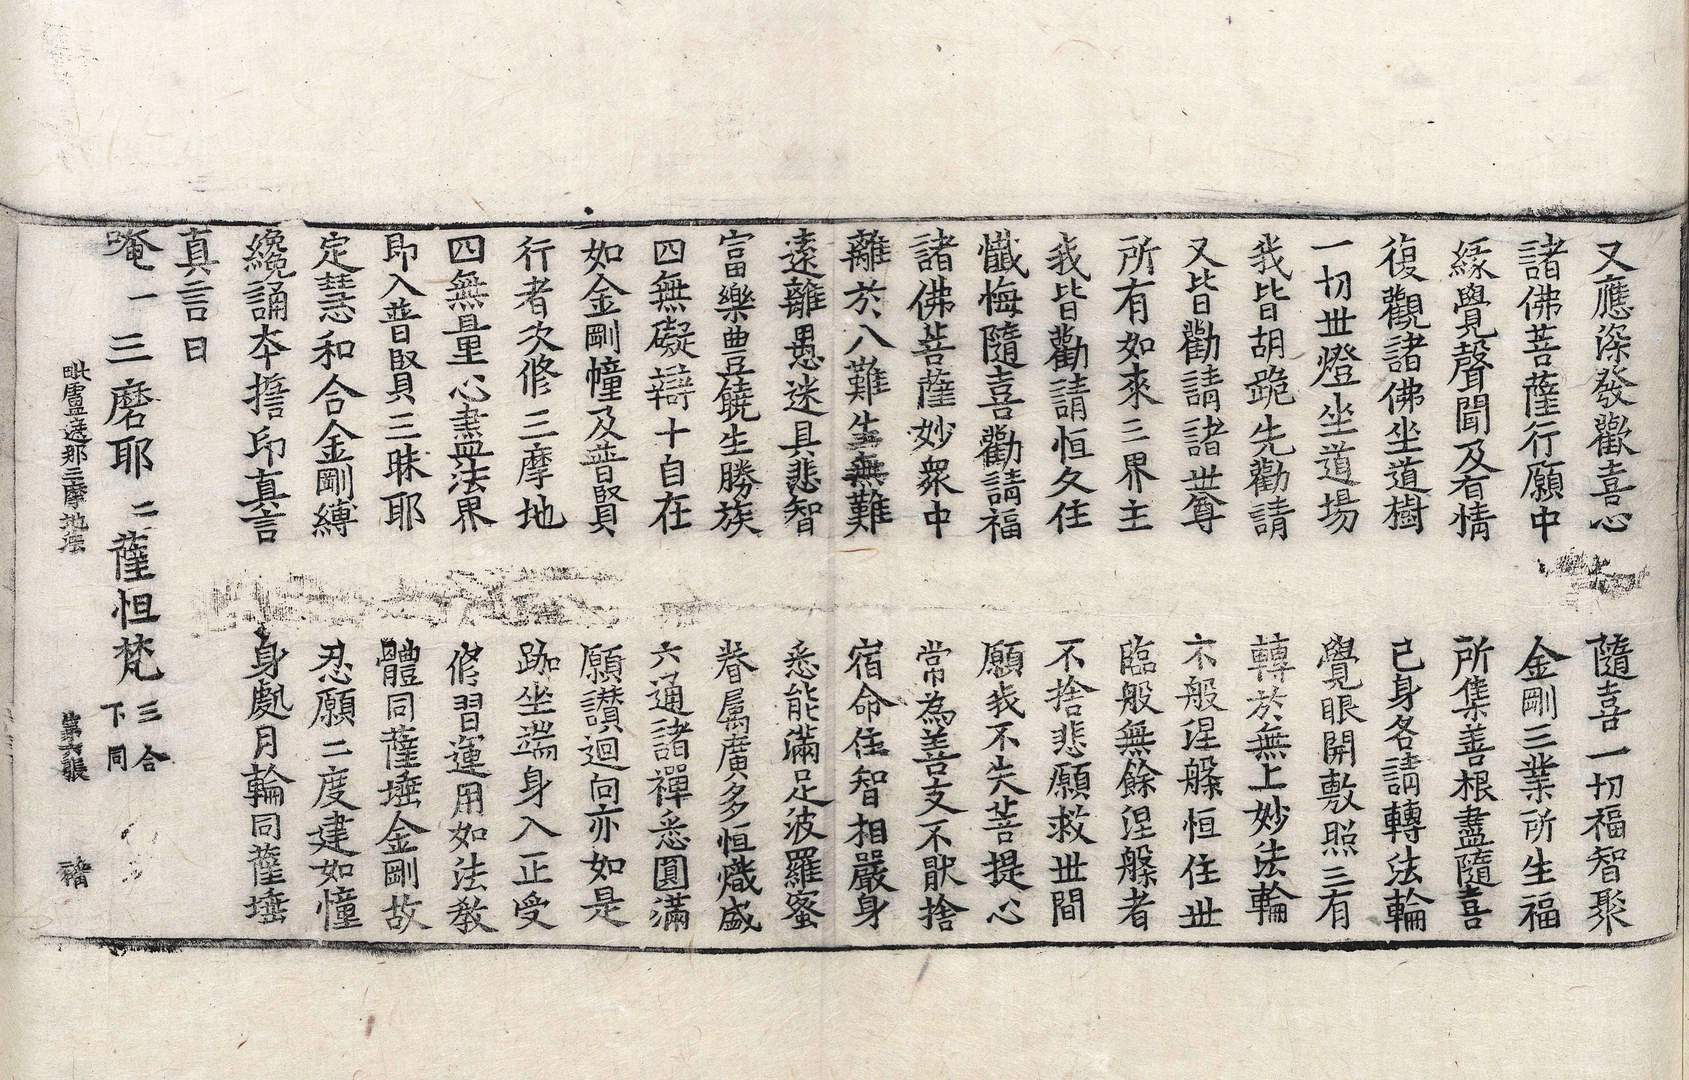 又應深發歡喜心　隨喜一切福智聚
諸佛菩薩行願中　金剛三業所生福
緣覺聲聞及有情　所集善根盡隨喜
復觀諸佛坐道樹　己身各請轉法輪
一切世燈坐道場　覺眼開敷照三有
我皆胡跪先勸請　轉於無上妙法輪
又皆勸請諸世尊　不般涅槃恒住世
所有如來三界主　臨般無餘涅槃者
我皆勸請恒久住　不捨悲願救世間
懺悔隨喜勸請福　願我不失菩提心
諸佛菩薩妙衆中　常為善友不猒捨
離於八難生無難　宿命住智相嚴身
遠離愚迷具悲智　悉能滿足波羅蜜
富樂豊饒生勝族　眷屬廣多恒熾盛
四無礙辯十自在　六通諸禪悉圓滿
如金剛幢及普賢　願讃迴向亦如是
行者次修三摩地　跏坐端身入正受
四無量心盡法界　修習運用如法教
即入普賢三昧耶　體同薩埵金剛故
定慧和合金剛縛　忍願二度建如幢
纔誦本誓印真言　身處月輪同薩埵
真言曰
唵一三磨耶二薩怛梵三合下同
毗盧遮那三摩地法　第六張